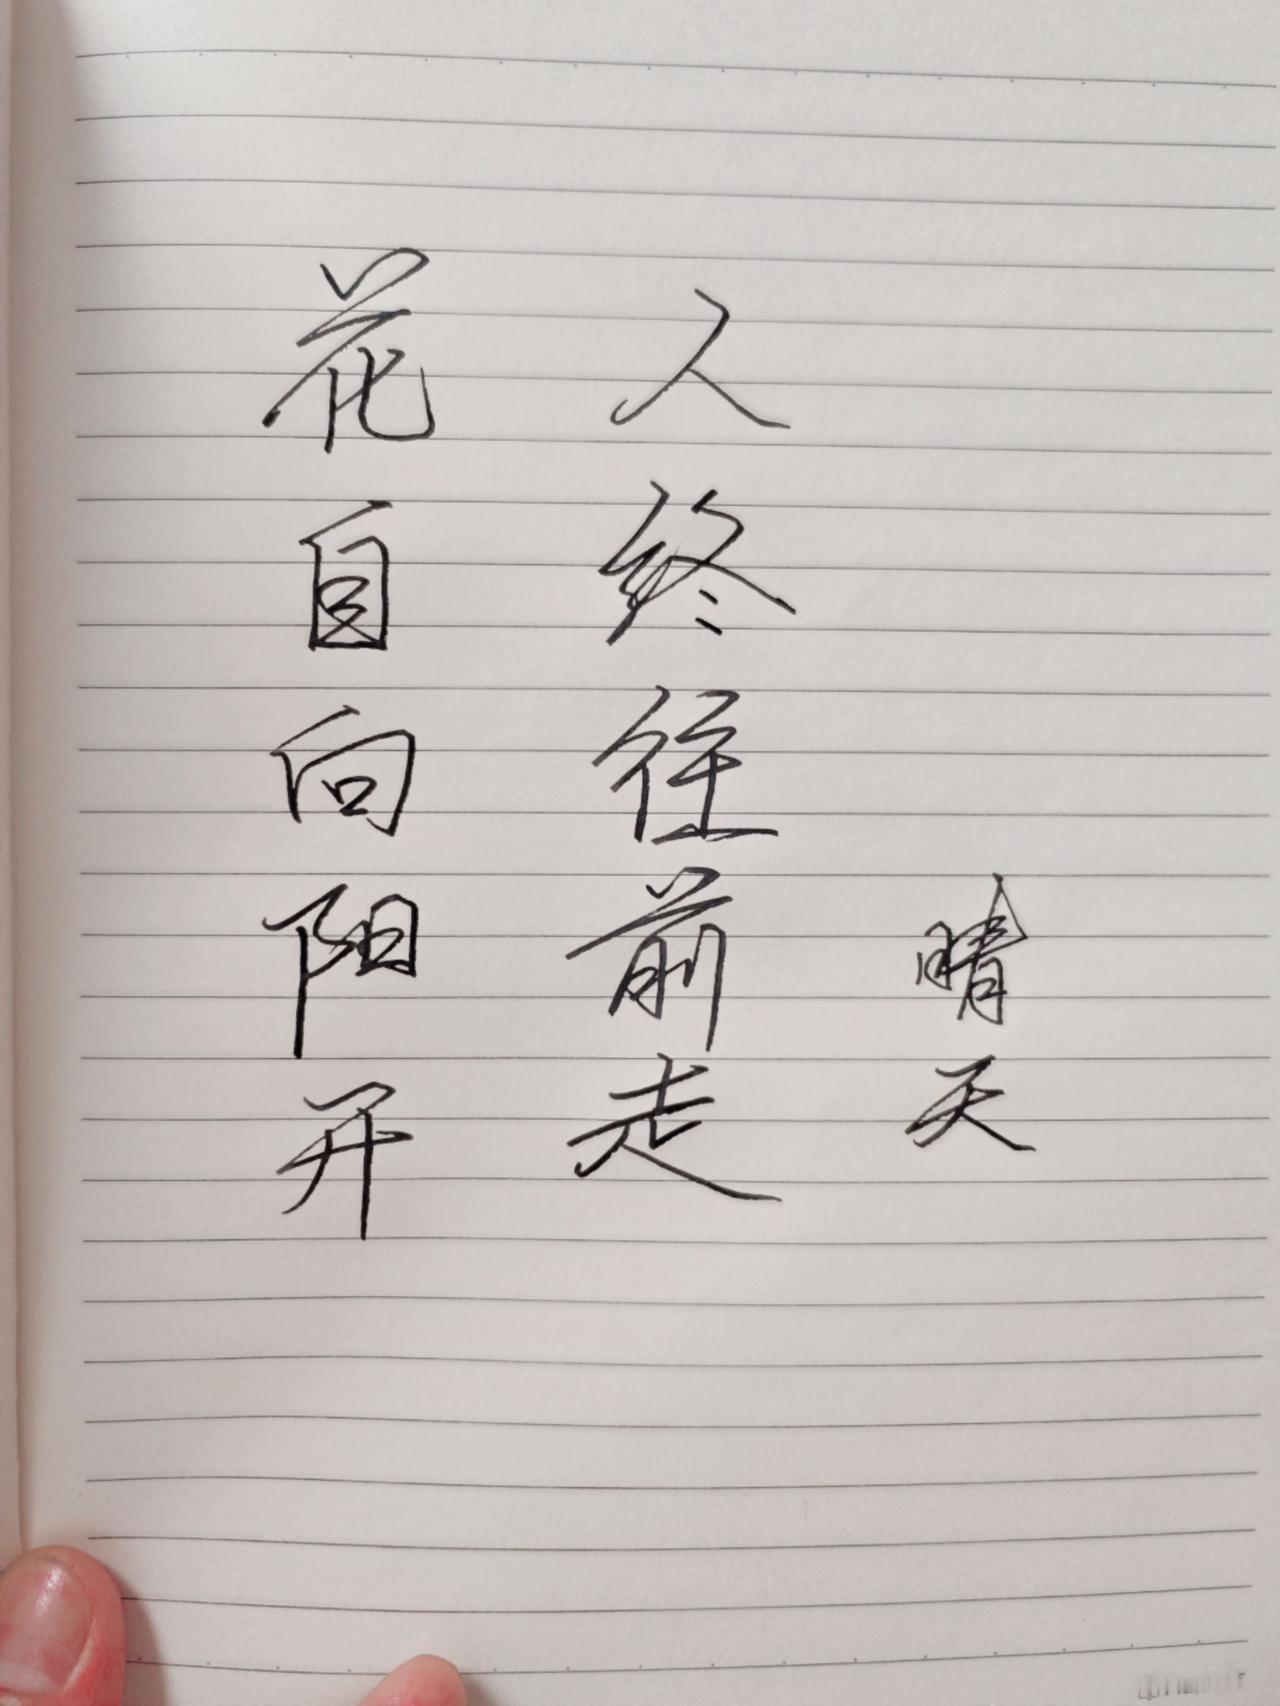 花自向阳开
人终往前走
晴天